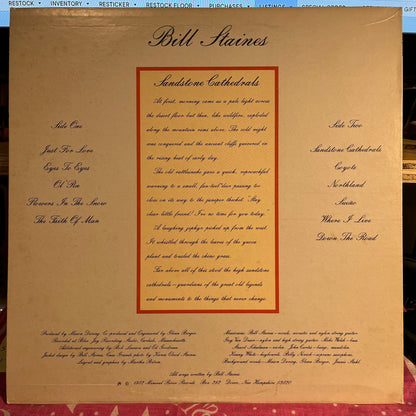 RESTOCK
INVENTORY
RESTICKER
RESTOCK FLOOR
PURCHASES
LISTINGS
Bill Staines
Sandstone Cathedrals
At first, morning came as a pale light across
the desert floor but then, like wildfire, exploded
along the mountain rims above. The cold night
was conquered and the ancient cliffs quivered in
the rising heat of early day.
The old rattlesnake gave a quick, reproachful
warning to a small, fox-tail'd passing too
close on its way to the juniper thicket. "Stay
clear little friend! I've no time for you today."
A laughing zephyr picked up from the west.
It whistled through the leaves of the yucca
plant and tousled the shine grass.
Far above all of this stood the high sandstone
cathedrals — guardians of the great old legends
and monuments to the things that never change.
Side One
Just For Love
Eyes To Eyes
Ol' Pin
Flowers In The Snow
The Faith Of Man
Side Two
Sandstone Cathedrals
Coyote
Northland
Where I Live
Down The Road
Produced by Mason Daring, Co-produced and Engineered by
Recorded at Blue Jay Recording Studio, Carlisle, Massachusetts
Additional engineering by
Jacket design by Bill Staines,
Layout and graphics by Martha
Musicians: Bill Staines - vocals, acoustic and nylon string guitar
Guy Van Duser - nylon and high string guitar,
Kenny White - keyboards, Billy Novick - soprano saxophone,
Background vocals - Mason Daring,
All songs written by Bill Staines
© 1983 Mineral River Records Box 292 Dover, New Hampshire 03820